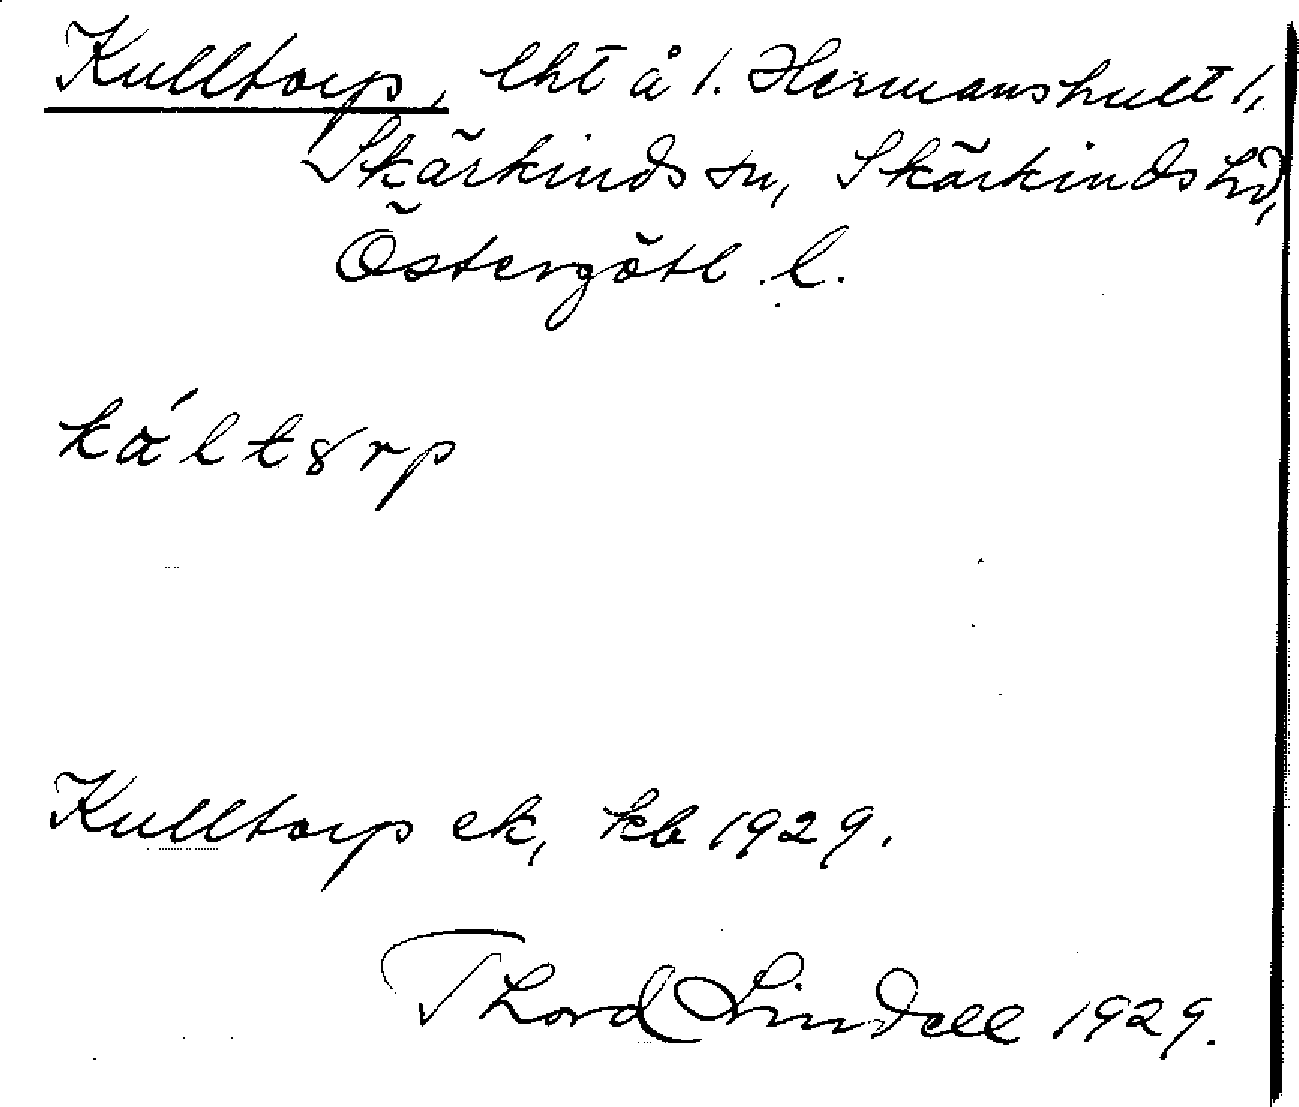 Kulltorp, lht å 1. Hermanshult 1,
Skärkinds sn, Skärkinds hd,
Östergötl. l.
kál t8rp
Kulltorp ek, kb 1929.
Thord Lindell 1929.